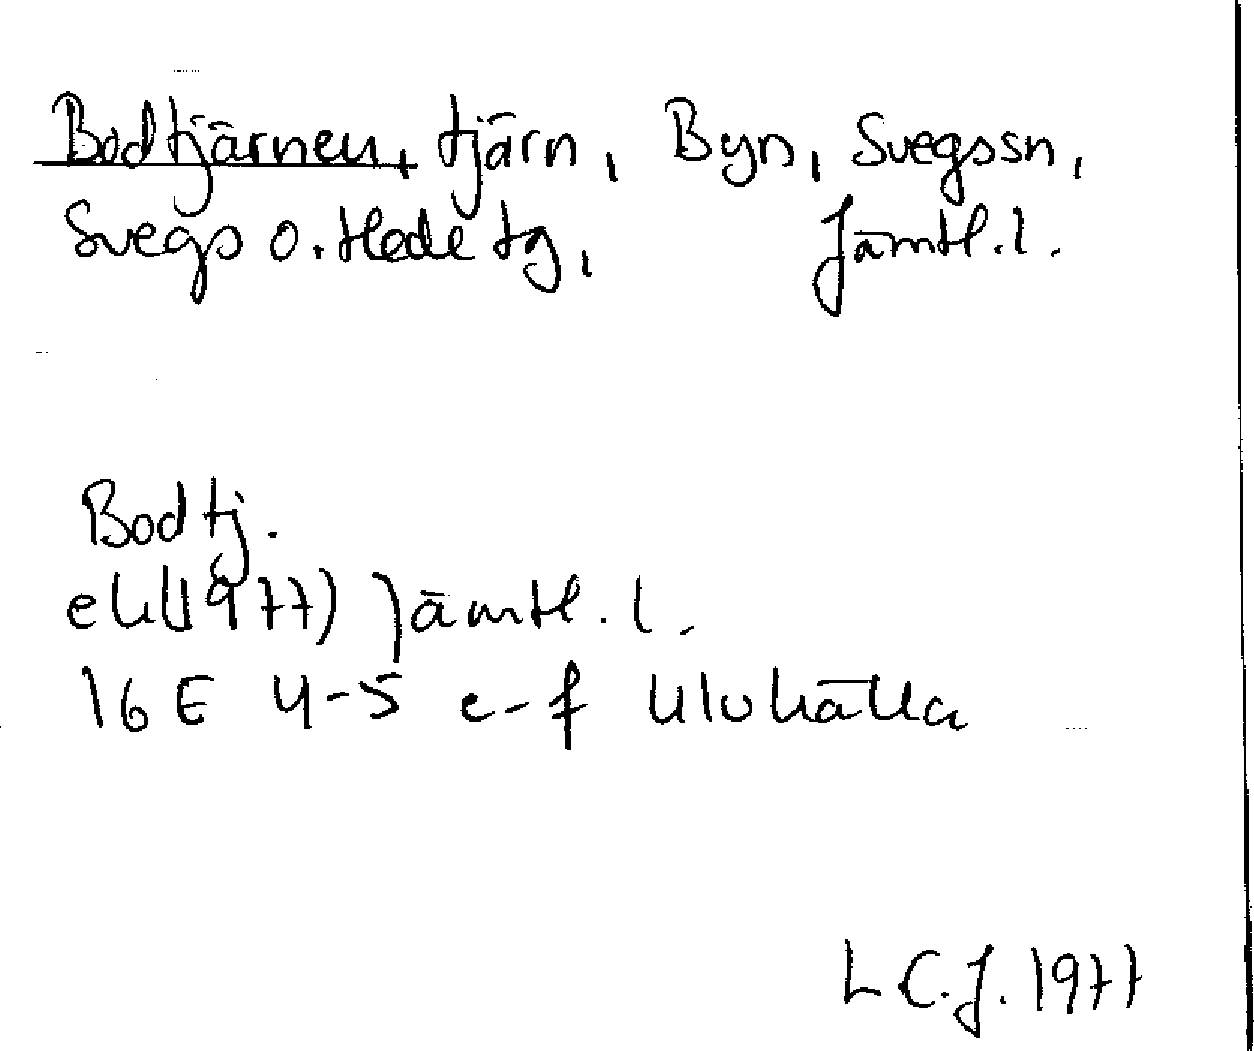 Bodtjärnen, tjärn, Byn, Svegs sn,
Svegs o. Hede tg, Jämtl. l.
Bodtj.
ek (1977) Jämtl. l.
16 E 4-5 e-f Ulvkälla
L C. J. 1977